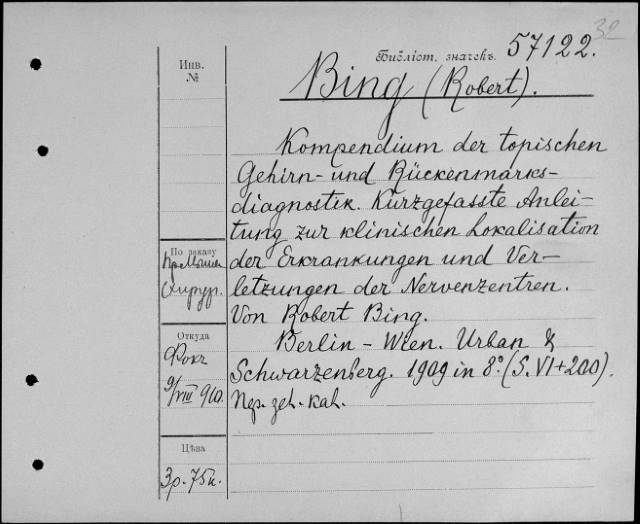 32
Библіот. значекъ 57122.
Инв.
№
Bing (Robert).
Kompendium der topischen
Gehirn- und Rückenmarks-
diagnostik. Kurzgefasste Anlei-
tung zur klinischen Lokalisation
der Erkrankungen und Ver-
letzungen der Nervenzentren.
Von Robert Bing.
Berlin - Wien. Urban &
Schwarzenberg. 1909 in 8º. (S. VI+200).
По заказу
Хирур.
Откуда
Фокк
9/VIII 910.
Цѣна
3р. 75к.